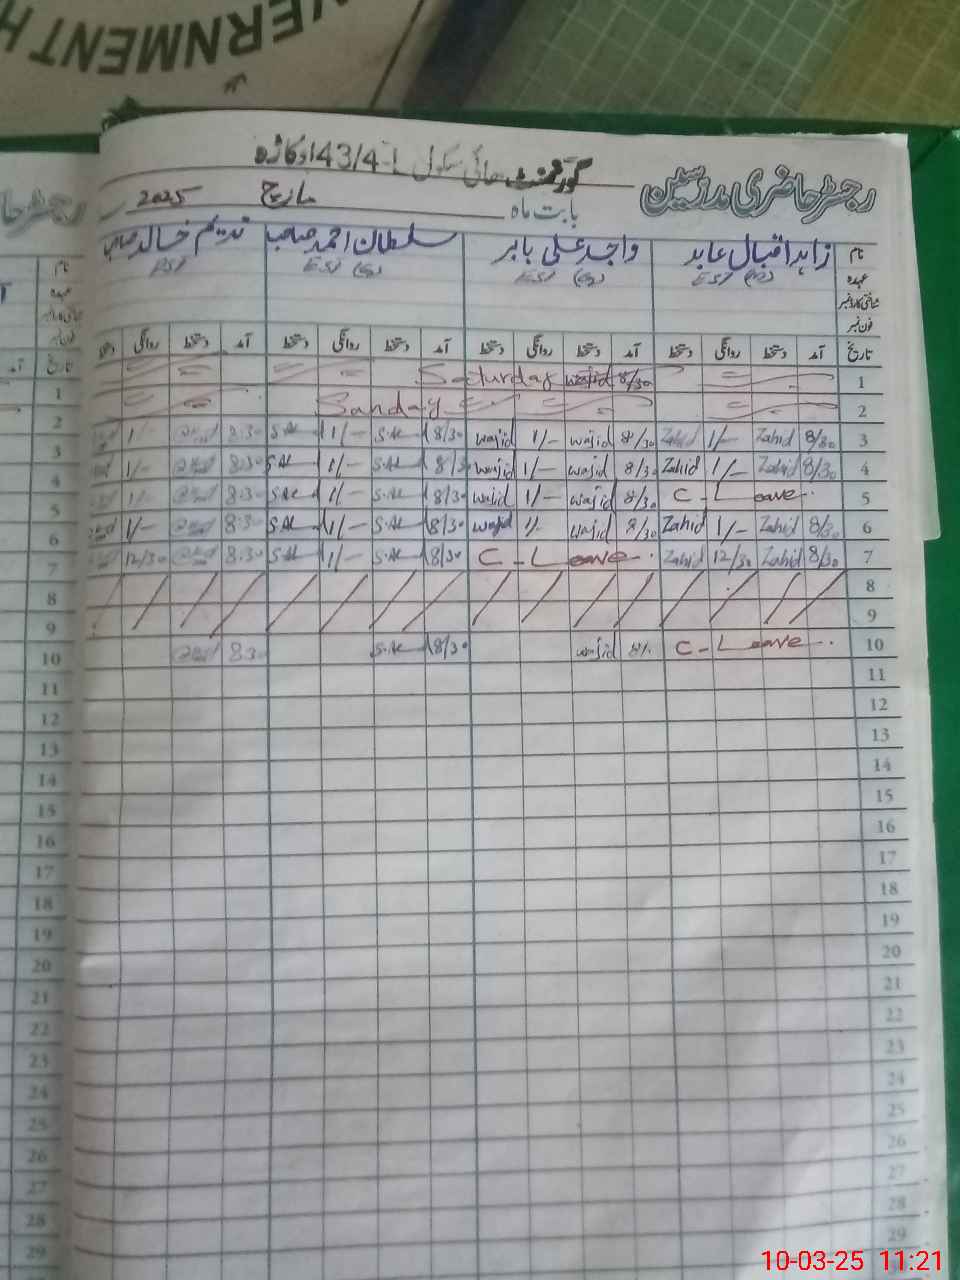 GOVERNMENT H
رجسٹر حاضری مدرسین
گورنمنٹ ہائی سکول 143/4-L اوکاڑہ
بابت ماہ مارچ 2025
نام زاہد اقبال عابد واجد علی بابر سلطان احمد صاحب ندیم خالد صاحب
عہدہ EST EST EST PST
شناختی کارڈ نمبر
فون نمبر
تاریخ آمد دستخط روانگی دستخط آمد دستخط روانگی دستخط آمد دستخط روانگی دستخط آمد دستخط روانگی دستخط
Saturday wajid 8/30 1
Sanday 2
1/- 8:30 S.Al 1/- S.Al 8/30 wajid 1/- wajid 8/30 Zahid 1/- Zahid 8/30 3
1/- 8:30 S.Al 1/- S.Al 8/30 wajid 1/- wajid 8/30 Zahid 1/- Zahid 8/30 4
1/- 8:30 S.Al 1/- S.Al 8/30 wajid 1/- wajid 8/30 C-Leave 5
1/- 8:30 S.Al 1/- S.Al 8/30 wajid 1/- wajid 8/30 Zahid 1/- Zahid 8/30 6
12/30 8:30 S.Al 1/- S.Al 8/30 C-Leave Zahid 12/30 Zahid 8/30 7
8
9
8:30 S.Al 8/30 wajid C-Leave 10
11
12
13
14
15
16
17
18
19
20
21
22
23
24
25
26
27
28
29
رجسٹر حا
نام
عہدہ
شناختی کارڈ نمبر
فون نمبر
تاریخ
1
2
3
4
5
6
7
8
9
10
11
12
13
14
15
16
17
18
19
20
21
22
23
24
25
26
27
28
29
10-03-25 11:21